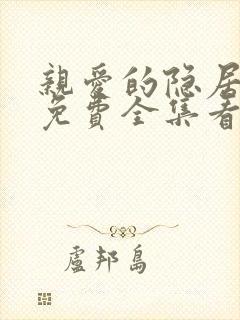 親愛的隐居
免費全集看
盧邦島